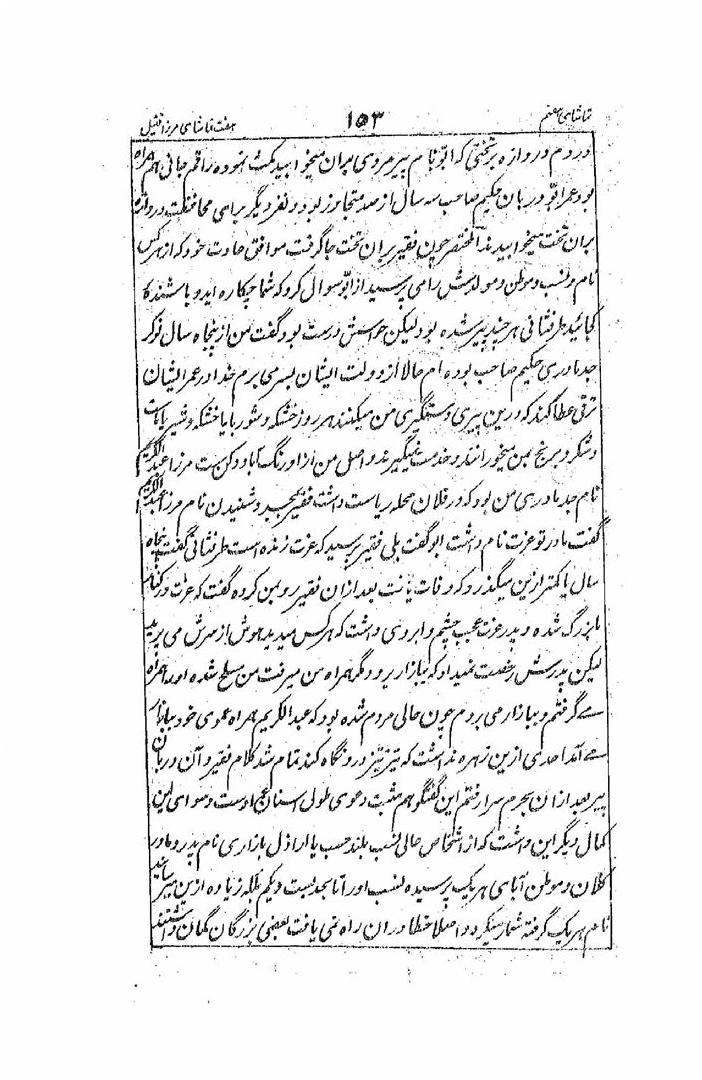 تماشای هفتم ۱۵۳ هفت تماشای مرزا قتیل
در دم دروازه بر تختی که ابّو نام پیرمردی بران میخوابید مکث نموده راقم جانی هم همراه
بود عمر ابّو دربان حکیم صاحب سه سال از صد متجاوز بود دو نفر دیگر برای محافظت دروازه
بران تخت میخوابیدند المختصر چون فقیر بران تخت جا گرفت موافق عادت خود که از هر کس
نام و نسب و موطن و مولدش را می پرسید از ابّو سوال کرد که شما چکاره اید و باشنده
کجائید طرفثانی هر چند پیر شده بود لیکن حواسش درست بود گفت من از پنجاه سال نوکر
جد مادری حکیم صاحب بوده ام حالا از دولت ایشان بسر می برم خدا در عمر ایشان
ترقی عطا کند که درین پیری دستگیری من میکنند هر روز خشکه و شوربا یا خشکه و شیر یا ماست
و شکر و برنج بمن میخورانند و خدمت نمیگیرند و اصل من از اورنگ آباد دکن ست مرزا عبدالکریم
نام جد مادری من بود که در فلان محله ریاست داشت فقیر بمجرد شنیدن نام مرزا عبدالکریم
گفت مادر تو عزت نام داشت ابو گفت بلی فقیر پرسید که عزت زنده است طرفثانی گفت پنجاه
سال یا کمتر ازین میگذرد که وفات یافت بعد ازان فقیر رو بمن کرده گفت که عزت در کنار
ما بزرگ شده و پدر عزت عجب چشم و ابروی داشت که هر کس میدید هوش از سرش می پرید
لیکن پدرش رخصت نمیداد که ببازار برود مگر همراه من میرفت من مسلح شده او را همراه
می گرفتم و ببازار می بردم چون حالی مردم شده بود که عبدالکریم همراه عموی خود ببازار
می آمد احدی ازین زهره نداشت که تیز تیز درو نگاه کند تمام شد کلام فقیر و آن دربان
پیر بعد ازان بجرم سر رفتم این گفتگو هم مثبت دعوی طول اسنان عجاوست و سوای این
کمال دیگر این داشت که از اشخاص عالی نسب بلند حسب یا اراذل بازاری نام پدر و مادر
کلان و موطن آبای هر یک پرسیده نسب او را تا بجد بست و یکم بلکه زیاده ازین میرسانید
نام هر یک گرفته شمار میکرد و اصلا خطا دران راه نمی یافت بعضی بزرگان گمان داشتند